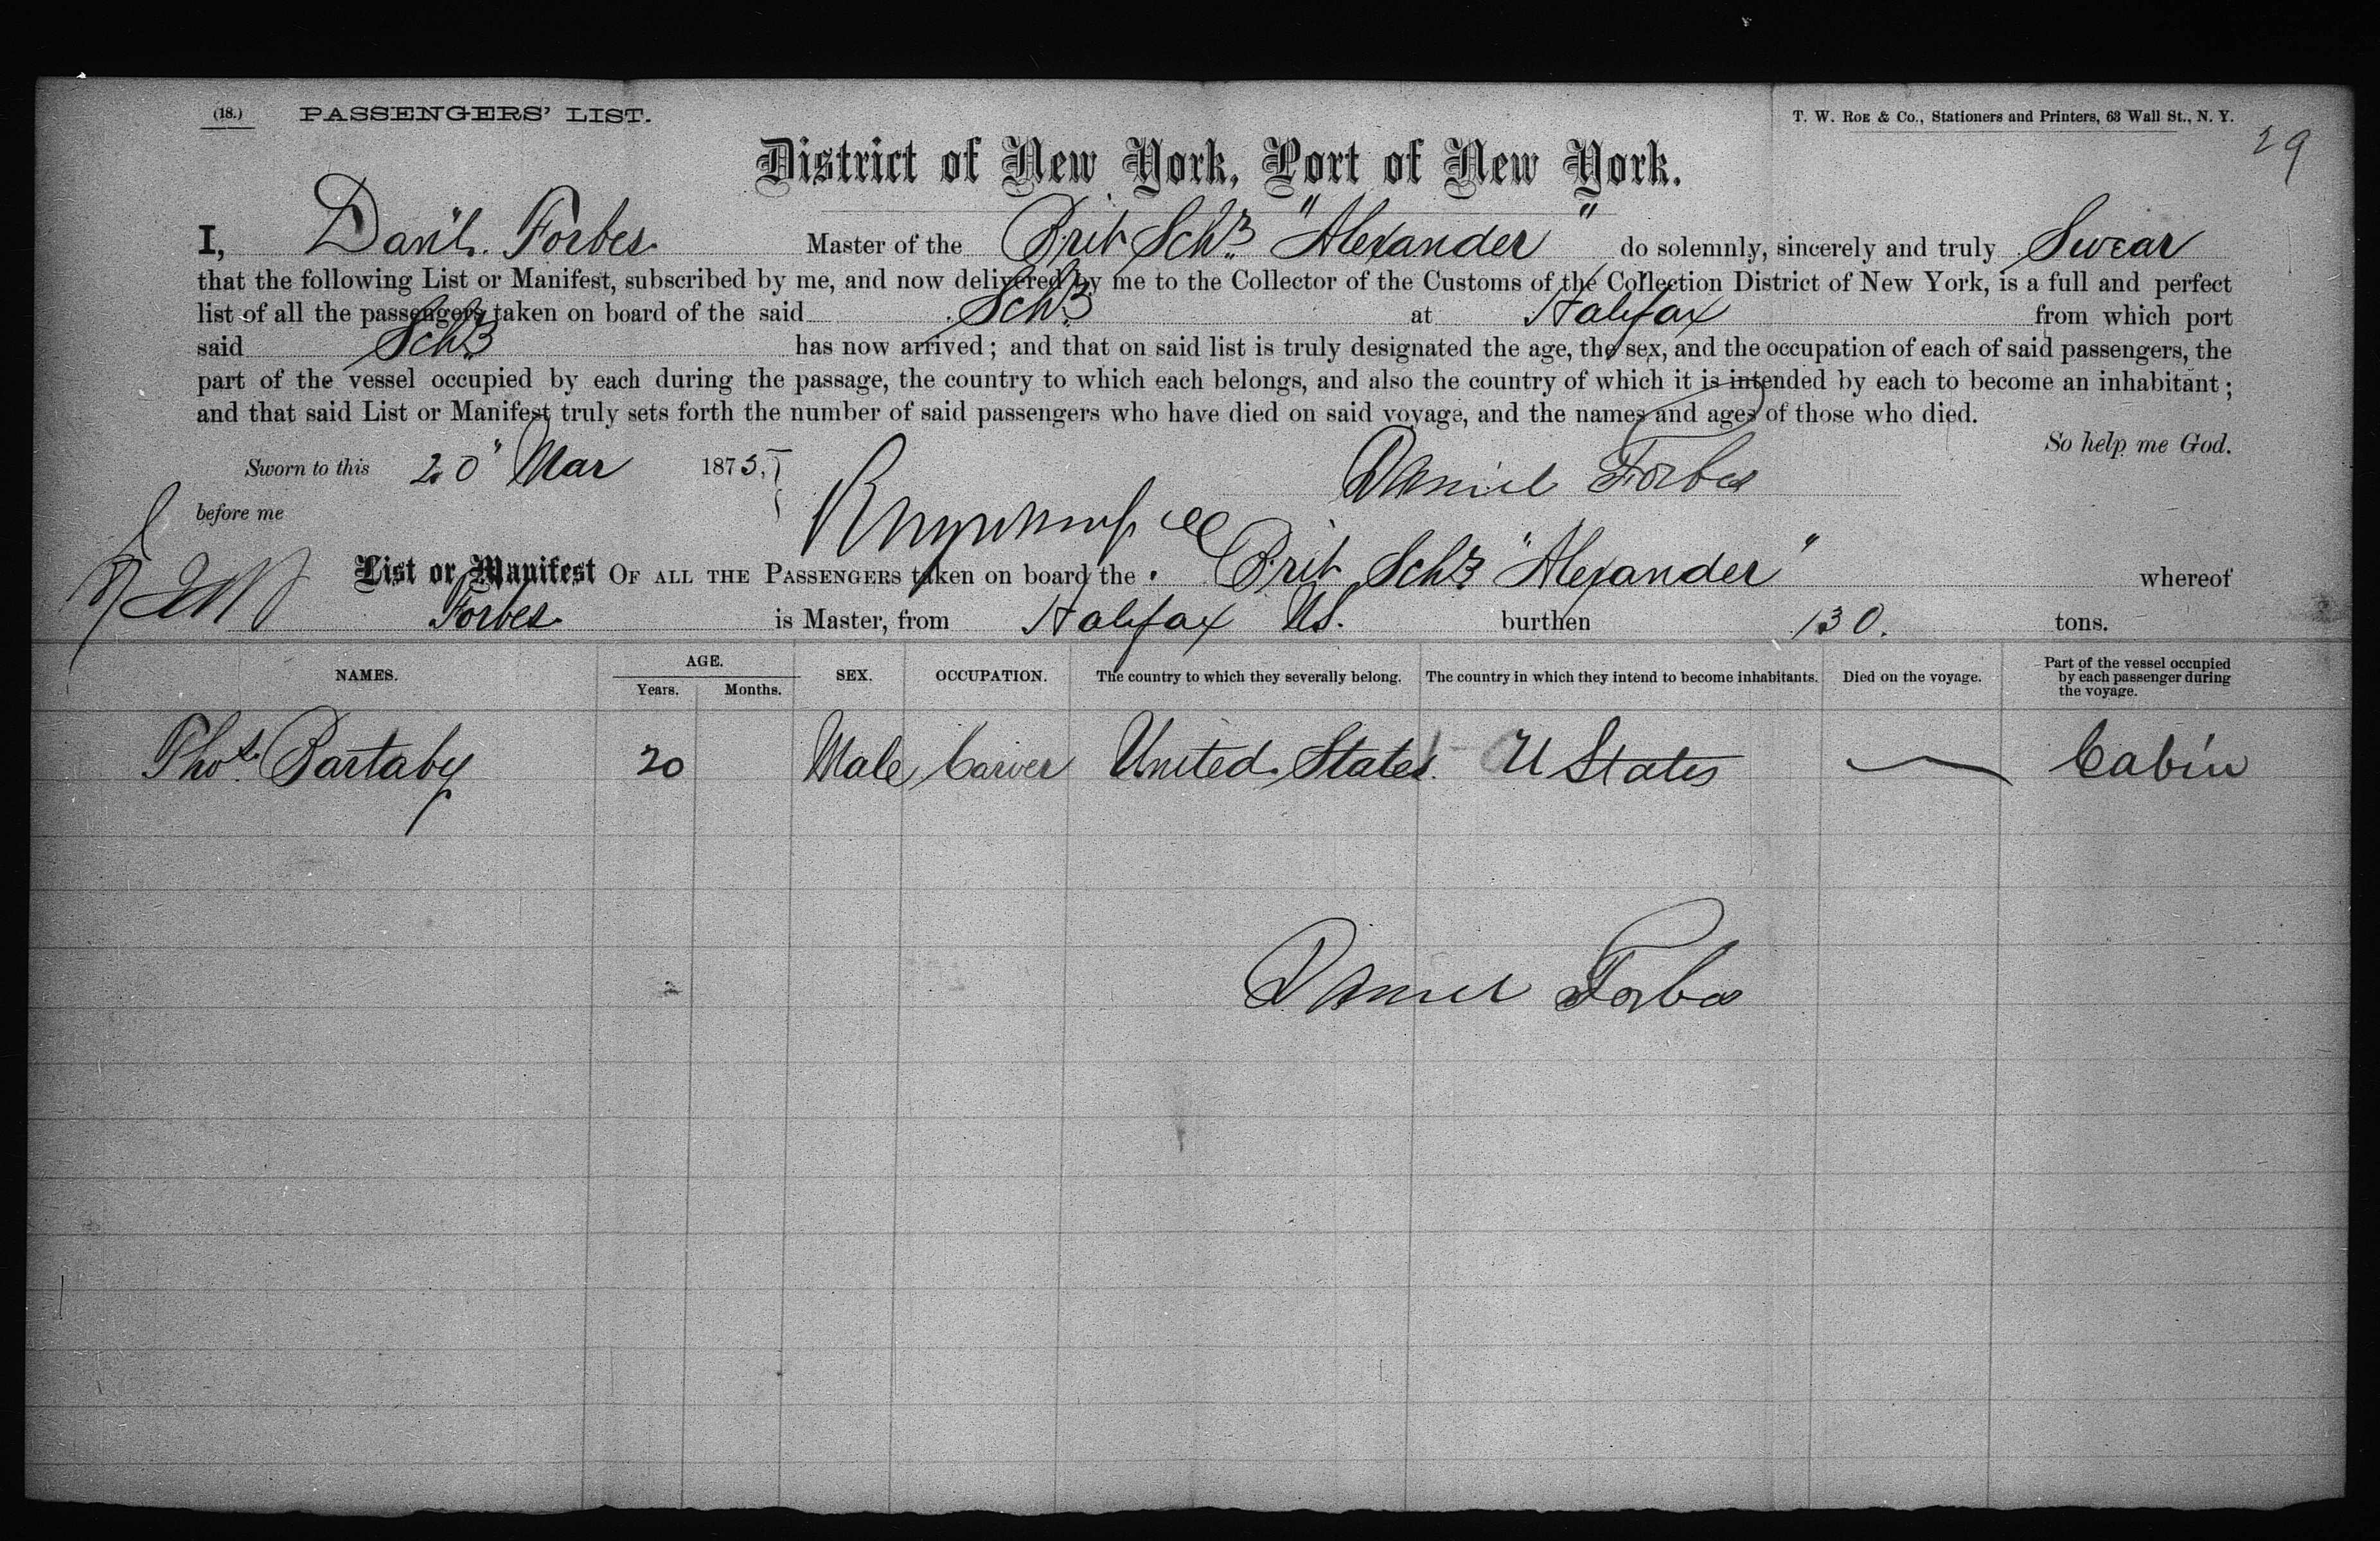 (18.) PASSENGERS' LIST. T. W. ROE & Co., Stationers and Printers, 63 Wall St., N. Y.
29
District of New York, Port of New York.
I, Dan'l. Forbes Master of the Brit Schr "Alexander" do solemnly, sincerely and truly Swear
that the following List or Manifest, subscribed by me, and now delivered by me to the Collector of the Customs of the Collection District of New York, is a full and perfect
list of all the passengers taken on board of the said Schr at Halifax from which port
said Schr has now arrived; and that on said list is truly designated the age, the sex, and the occupation of each of said passengers, the
part of the vessel occupied by each during the passage, the country to which each belongs, and also the country of which it is intended by each to become an inhabitant;
and that said List or Manifest truly sets forth the number of said passengers who have died on said voyage, and the names and ages of those who died.
So help me God.
Sworn to this 20" Mar 1875, Daniel Forbes
before me
List or Manifest OF ALL THE PASSENGERS taken on board the Brit Schr "Alexander" whereof
Forbes is Master, from Halifax NS. burthen 130. tons.
NAMES. AGE. Years. Months. SEX. OCCUPATION. The country to which they severally belong. The country in which they intend to become inhabitants. Died on the voyage. Part of the vessel occupied by each passenger during the voyage.
Thos. Bartaby 20 Male Carver United States U States — Cabin
Daniel Forbes